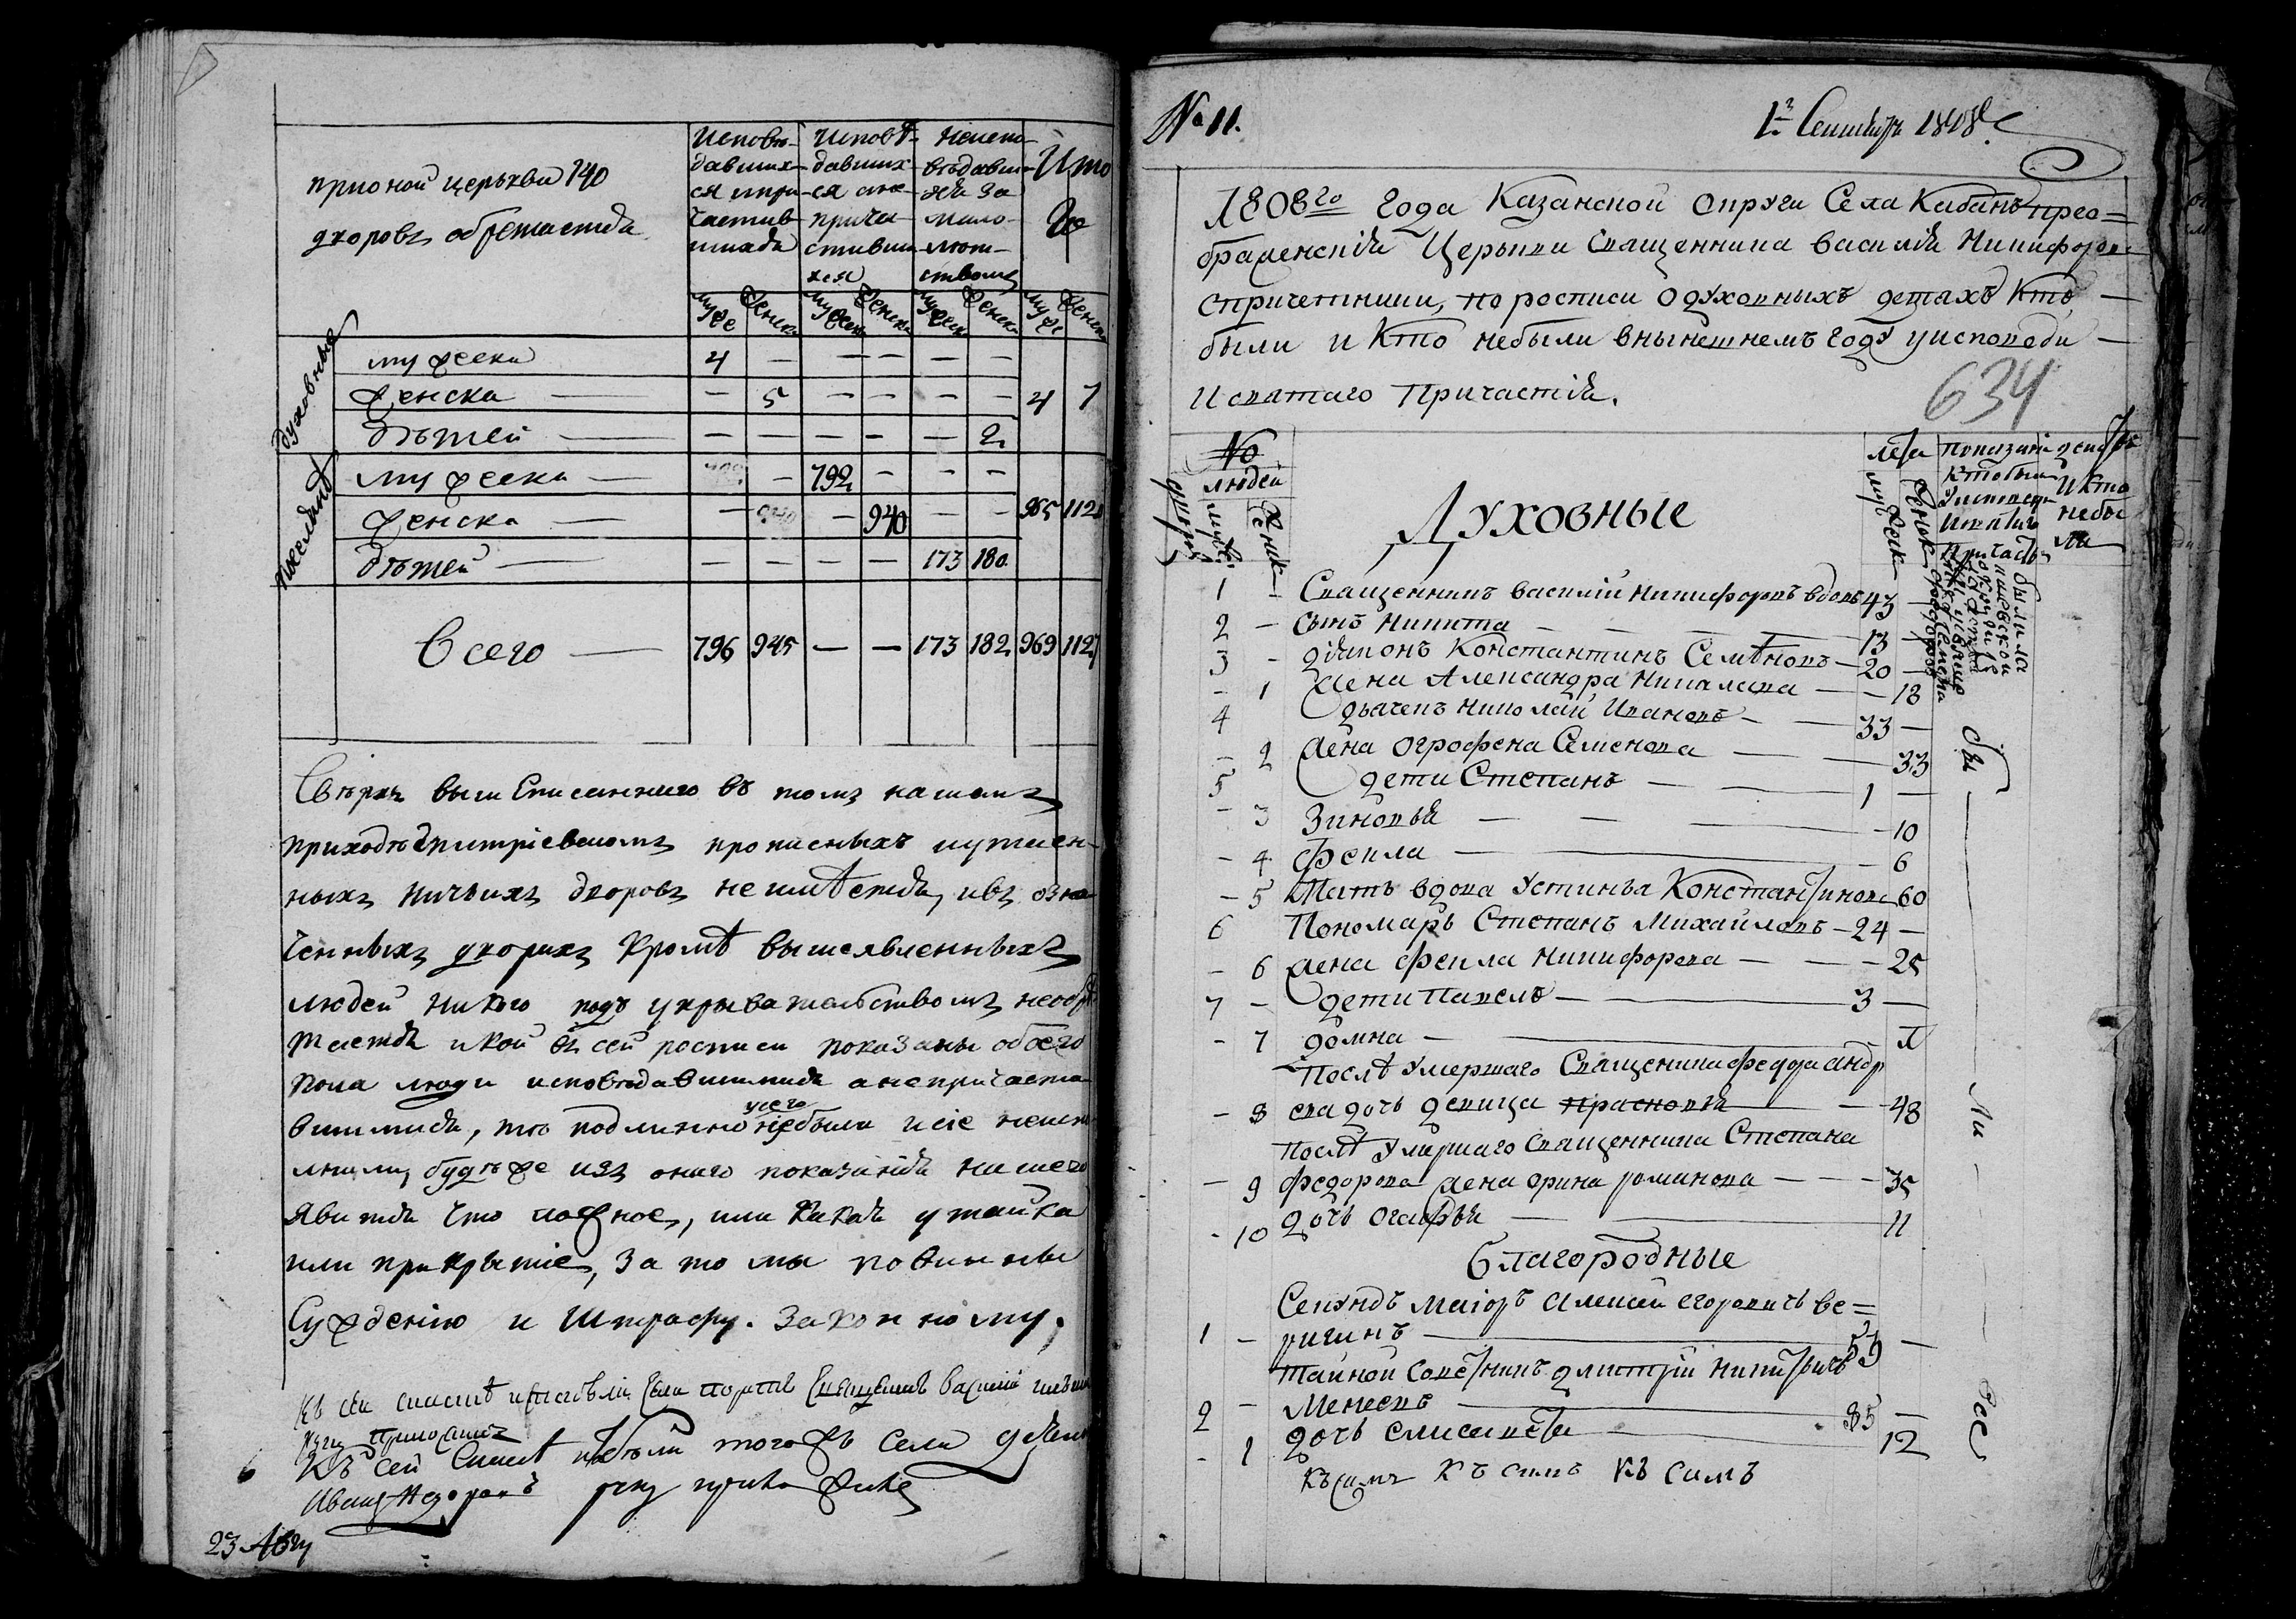 при оной церькви 140
дворовъ обретается
Исповѣ-
давших-
ся и при-
частив-
шихся
Исповѣ-
давших-
ся а не
прича-
стивши-
хся
Неиспо-
вѣдавши-
хся за
мало-
лѣт-
ствомъ
Ито
го
муже женск муженск женск муженск женск муже женск
Духовные
мужеска 4 — — — — —
женска — 5 — — — — 4 7
дѣтей — — — — — 2
поселяне
мужеска — — 792 — — —
женска — — 940 — — 965 1120
дѣтей — — — — — 173 180
Всего — 796 945 — — 173 182 969 1127
Свѣрхъ выше писаннаго въ томъ нашемъ
приходѣ Дмитріевскомъ прописныхъ и утаен-
ныхъ ничьихъ дворовъ неимѣется, и въ озна-
ченныхъ дворихъ Кромѣ вышеявленныхъ
людей никого подъ укрывательствомъ необрѣ-
тается и кои въ сей росписи показаны обоего
пола люди исповѣдавшимися а непричасти-
вшимися, то подлинно у него небыли и сіе
будѣже изъ онаго показанія нашего
явится что ложное, или какая утайка
или прикрытіе, за то мы повинны
Сужденію и Штрафу. законному.
Къ сей Села Священникъ Василий
руку приложилъ
Къ сей того жъ села
Иванъ Федоровъ руку приложилъ
6
23 Авгу
№ 11.
1г Сентября 1808г
1808го Года Казанской Округи Села Кабанъ прео=
браженскія Церькви Священника Василія Никифорова
спричетники, по росписи о духовныхъ детяхъ Кто —
были и Кто небыли внынешнемъ Году уисповеди —
И святаго Причастія.
634
№
людей
дворовъ
муже.
женск
Духовные
лета
мужеск
женск
Показание действъ
Кто были
Уисповеди
Исвятаго
Причастія
И Кто
небы
ли
1 — Священникъ василий Никифоровъ вдовъ 43 —
2 — Сынъ Никита — — 13 —
3 — діяконъ Константинъ Семѣновъ — 20 —
— 1 жена Александра Николаева — — 18
4 дьячекъ Николай Ивановъ — — 33 —
— 2 жена Огрофена Семенова — — 33
5 дети Степанъ — — 1 —
— 3 Зиновья — — — 10
— 4 Фекла — — 6
— 5 Мать вдова Устинья Константинова 60
6 Пономарь Степанъ Михайловъ — 24 —
— 6 жена Фекла Никифорова — — — 25
7 — дети Павелъ — — 3 —
— 7 домна — — 1
Послѣ Умершаго Священника Федора Андр
— 8 ева дочь девица прасковья — — 48
Послѣ Умершаго Священника Степана
— 9 Федорова жена Орина романова — — — 35
— 10 дочь Огафья — — 11
были всс
Благородные
Секундъ маіоръ Алексей егоровичь Ве=
1 — ригинъ — 59 —
тайной Советникъ дмитрій Никитьичь
2 — Менеевъ — 85 —
— 1 дочь елисавета — 12
Къ симъ Къ симъ Къ симъ